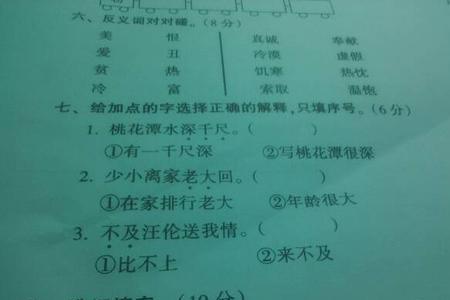 六、反义词对对碰。(8分)
美 恨 真诚 奉献
爱 丑 冷漠 虚假
贫 热 饥寒 热忱
冷 富 索取 温饱
七、给加点的字选择正确的解释,只填序号。(6分)
1. 桃花潭水深千尺。( )
①有一千尺深 ②写桃花潭很深
2. 少小离家老大回。( )
①在家排行老大 ②年龄很大
3. 不及汪伦送我情。( )
①比不上 ②来不及
(10分)